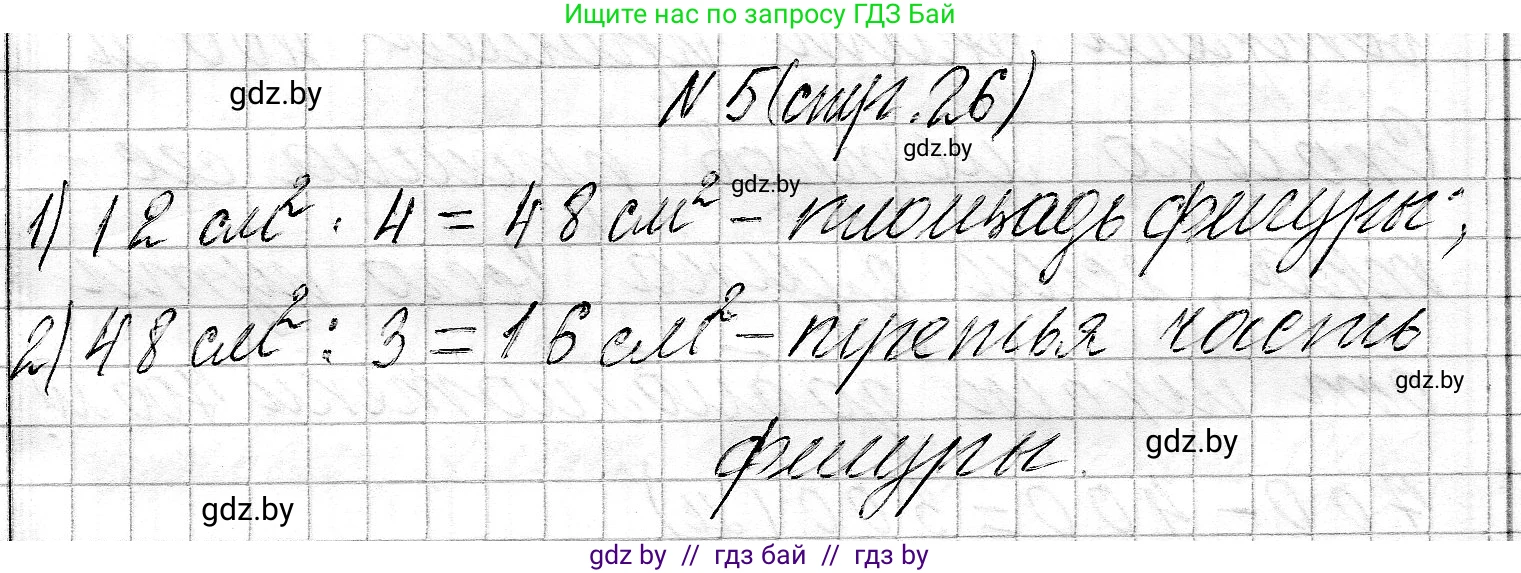 Ищите нас по запросу ГДЗ Бай
gdz.by
N 5 (стр. 26)
gdz.by
gdz.by
1) 12 см² · 4 = 48 см² - площадь фигуры;
2) 48 см² : 3 = 16 см² - третья часть
gdz.by
фигуры.
gdz.by
gdz.by
gdz by // гдз бай // гдз by